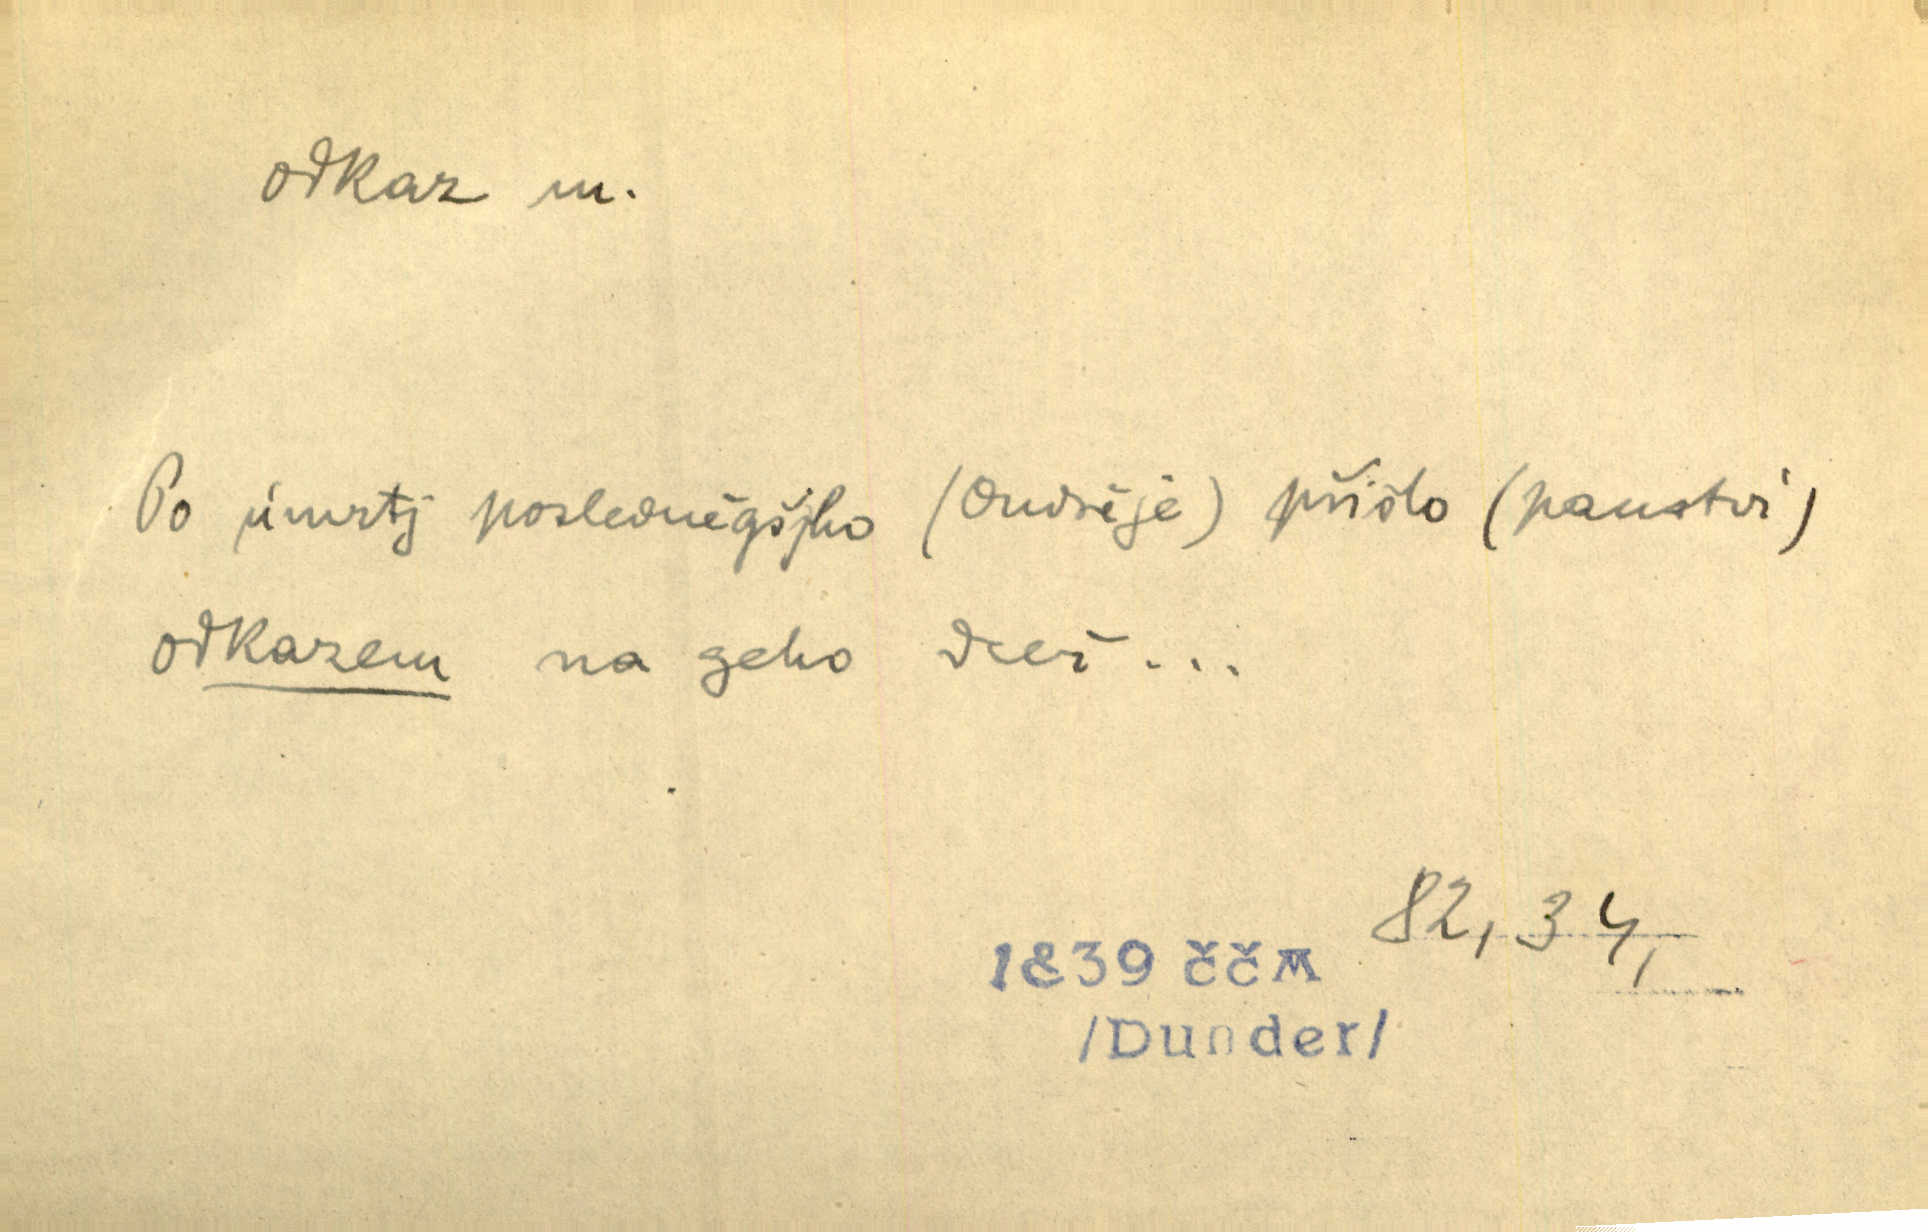 odkaz m.
Po úmrtj posledněgšjho (Ondřeje) přišlo (panství)
odkazem na geho dceř...
82, 34,
1839 ČČM
/Dunder/